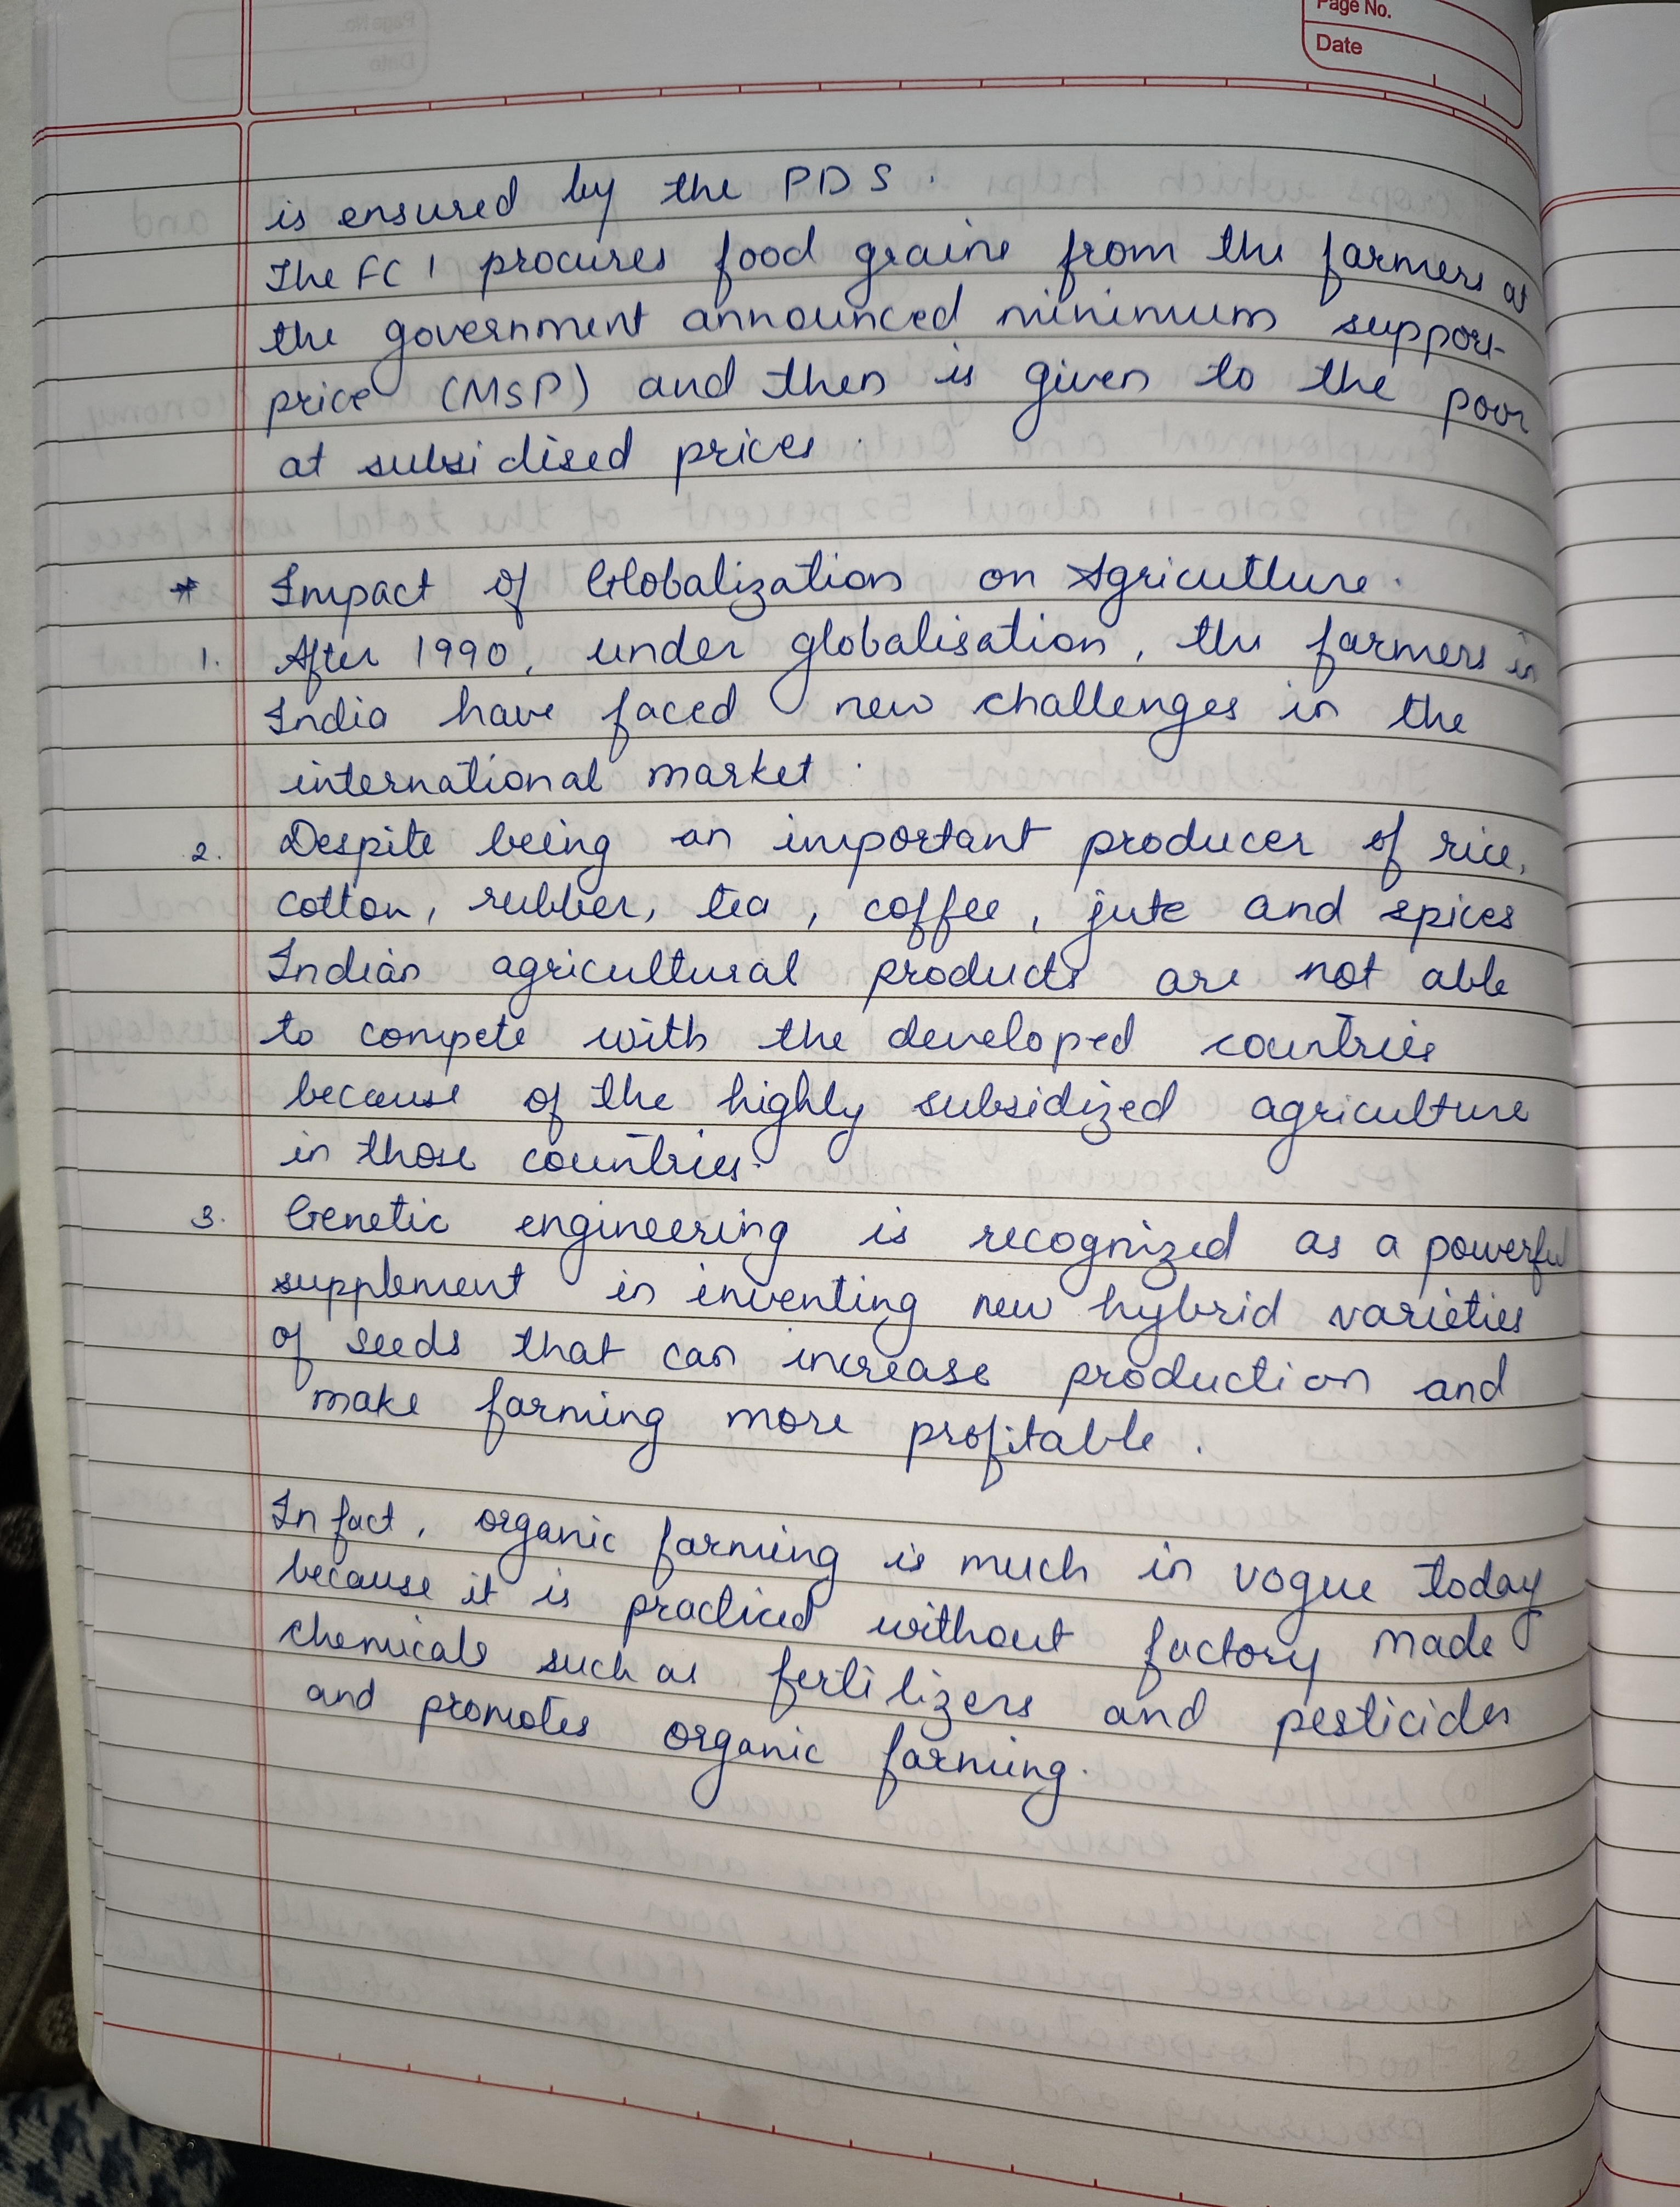 Page No.
Date
is ensured by the PDS.
The FCI procures food grains from the farmers at
the government announced minimum support
price (MSP) and then is given to the poor
at subsidised prices.
* Impact of Globalization on Agriculture.
1. After 1990, under globalisation, the farmers in
India have faced new challenges in the
international market.
2. Despite being an important producer of rice,
cotton, rubber, tea, coffee, jute and spices
Indian agricultural products are not able
to compete with the developed countries
because of the highly subsidized agriculture
in those countries.
3. Genetic engineering is recognized as a powerful
supplement in inventing new hybrid varieties
of seeds that can increase production and
make farming more profitable.
In fact, organic farming is much in vogue today
because it is practiced without factory made
chemicals such as fertilizers and pesticides
and promotes organic farming.